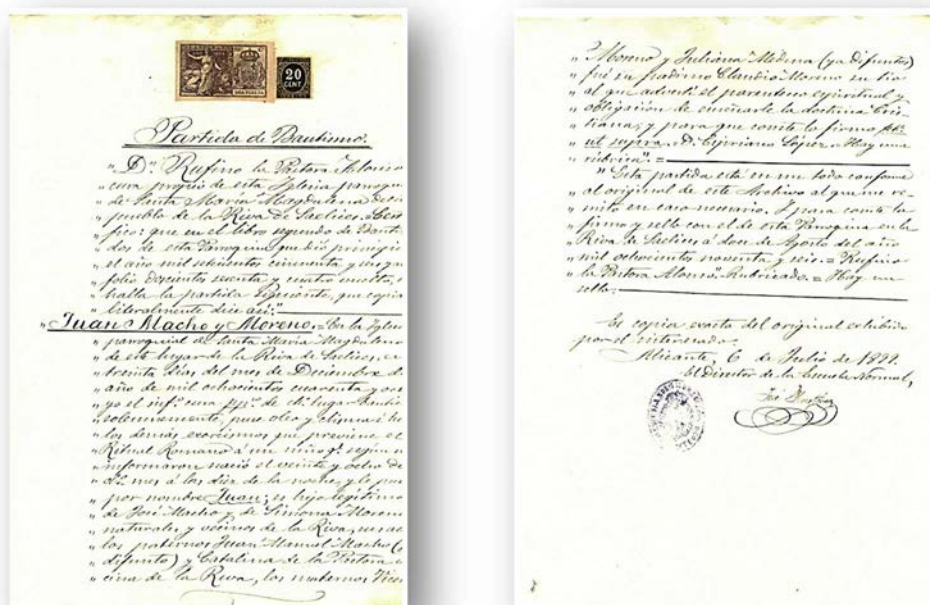 20
CENT
Partida de Bautismo.
"D.n Rufino la Pastora Alonso
" cura propio de esta Iglesia parroqu
" de Santa María Magdalena de es
" pueblo de la Riva de Saelices. Cer
" fico: que en el libro segundo de Bauti
" dos de esta Parroquia que dió principio
" el año mil setecientos cincuenta y
" folio doscientos sesenta y cuatro vuelto,
" halla la partida siguiente, que copia
" literalmente dice así:"
"Juan Macho y Moreno.= En la Igles
" parroquial de Santa María Magdalena
" de este lugar de la Riva de Saelices, a
" treinta dias del mes de Diciembre d
" año de mil ochocientos cuarenta y
" yo el inf.o cura pp.o de dho lugar Bauti
" solemnemente, puse oleo y chrisma é hi
" los demás exorcismos que previene el
" Ritual Romano á un niño q.e según
" informaron nació el veinte y ocho de
" mes á las diez de la noche, y le pu
" por nombre Juan; es hijo legítimo
" de José Macho y de Simona Moreno
" naturales y vecinos de la Riva, sus
" los paternos Juan Manuel Macho (
" difunto) y Catalina de la Pastora
" cina de la Riva, los maternos
" Moreno y Juliana Medina (ya difuntos)
" fué su padrino Claudio Moreno su tio
" al que advertí el parentesco espiritual y
" obligación de enseñarle la doctrina Cris-
" tiana; y para que conste lo firmo
" ut supra.= D. Cipriano López.= Hay una
" rúbrica".=
" Esta partida está en un todo conforme
" al original de este Archivo al que me re-
" mito en caso necesario. Y para que conste lo
" firmo y sello con el de esta Parroquia en la
" Riva de Saelices á doce de Agosto del año
" mil ochocientos noventa y seis.= Rufino
" la Pastora Alonso.= Rubricado.= Hay un
" sello.=
Es copia exacta del original exhibido
por el interesado.
Alicante, 6 de Julio de 1897.
El Director de la Escuela Normal,